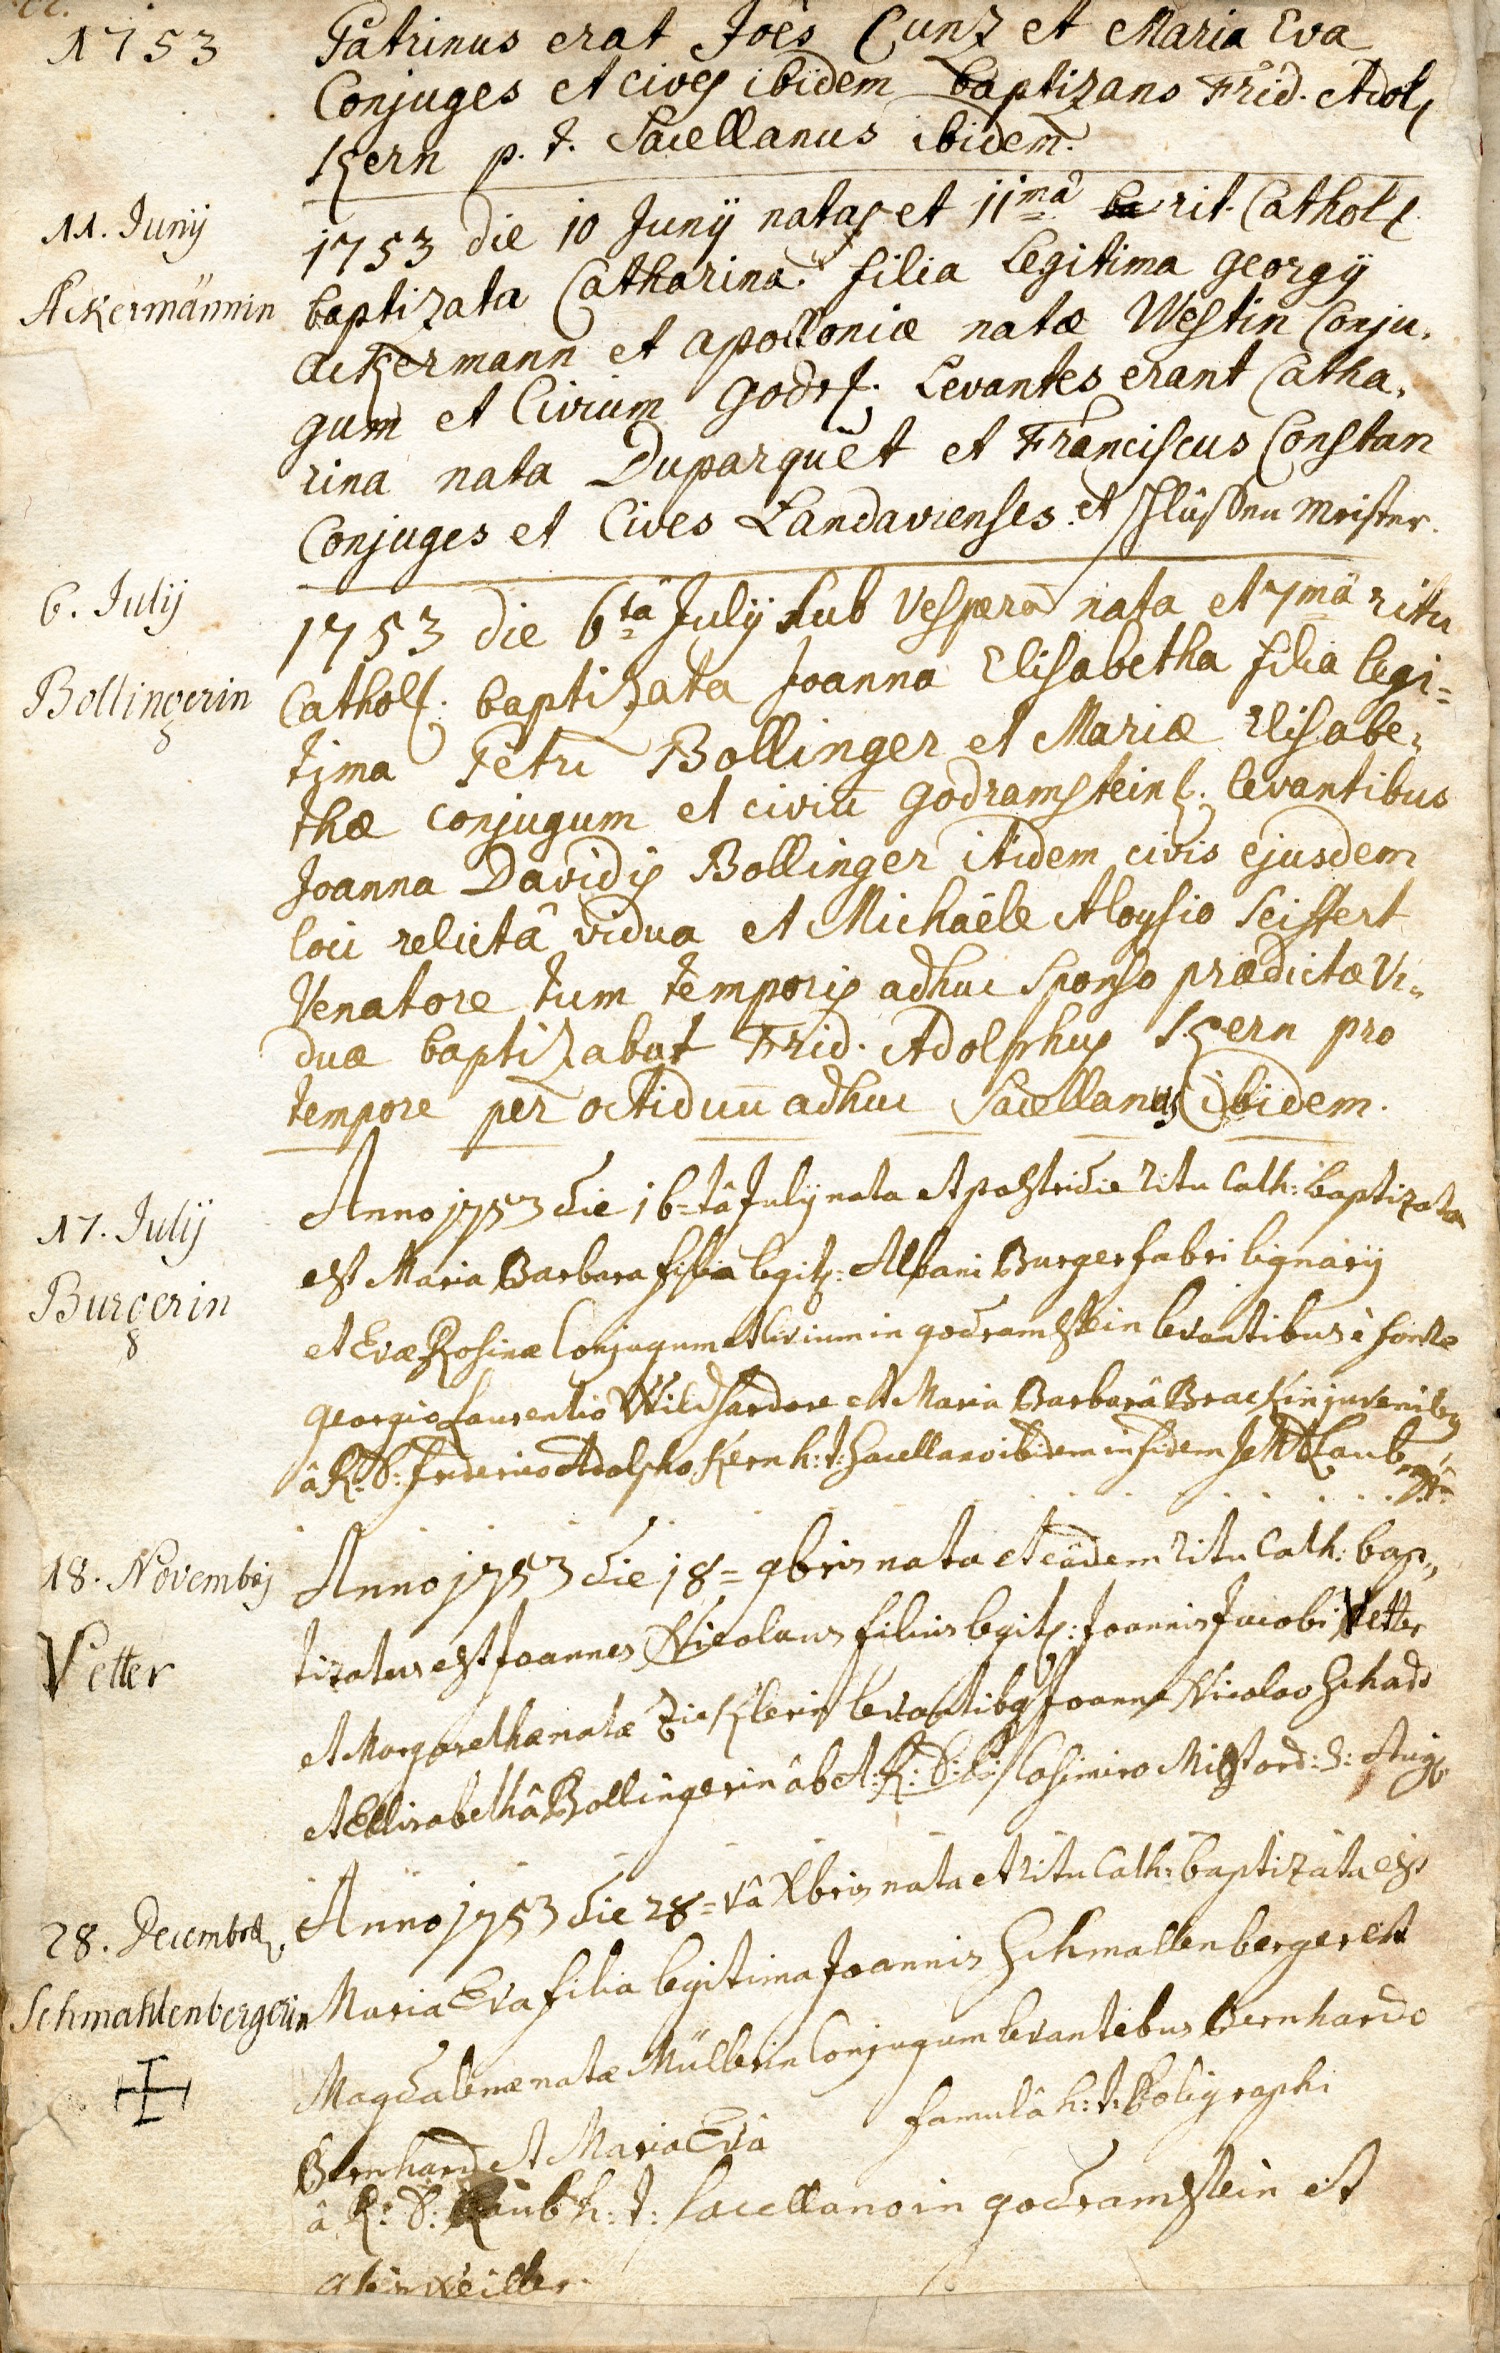 1753
Patrinus erat Joês Cunz et Maria Eva
Conjuges et cives ibidem baptizans Frid. Adol.
Kern p. t. Sacellanus ibidem.
11. Junÿ
Ackermännin
1753 die 10 Junÿ natas et 11mâ ba rit. Cathol.
baptizata Catharina filia Legitima georgÿ
ackermann et apolloniæ natæ Westin Conju,
gum et Civium Godr. Levantes erant Catha,
rina nata Duparquêt et Franciscus Constan
Conjuges et Cives Landavienses et
6. Julÿ
Bollingerin
1753 die 6tâ Julÿ sub Vesperã nata et 7mâ ritu
Cathol. baptizata Joanna Elisabetha filia legi=
tima Petri Bollinger et Mariæ Elisabe,
thæ conjugum et civiũ godramstein. levantibus
Joanna Davidis Bollinger itidem civis ejusdem
loci relictâ vidua et Michaële Aloysio Seiffert
Venatore tum temporis adhuc Sponso prædictæ Vi,
duæ baptizabat Frid. Adolphus Kern pro
tempore per octiduũ adhuc Sacellanus ibidem.
17. Julÿ
Burgerin
Anno 1753 die 16=tâ Julÿ nata et postridie ritu Cath: baptizata
est Maria Barbara filia legit: Albani Burger fabri lignarÿ
et Evæ Rosinæ Conjugum et Civium in godramstein levantibus è fonte
georgio Laurentio Wild sartore et Maria Barbarâ Brackin juvenibus
â R: D: Frderico Adolpho Kern h: t: Sacellano ibidem in fidem
18. Novembris
Vetter
Anno 1753 die 18= 9bris nata et eâdem ritu Cath: bap,,
tizatus est Joannes Nicolaus filius legit: Joannis Jacobi Vetter
et Margarethæ natæ Zicklerin levantibus Joanne Nicolao Schads
et Elisabethâ Bollingerin âb A: R: D: P: Casimiro Mist ord: S: Aug.
28. Decembris
Schmahlenbergerin
Anno 1753 die 28=vâ Xbris nata et ritu Cath: baptizata est
Maria Eva filia legitima Joannis Schmallenberger et
Magdalenæ natæ Müllerin Conjugum levantibus Bernhardo
Bernhard et Maria Evâ famulâ h: t:
â R: D: Raub h: t: Sacellano in godramstein et